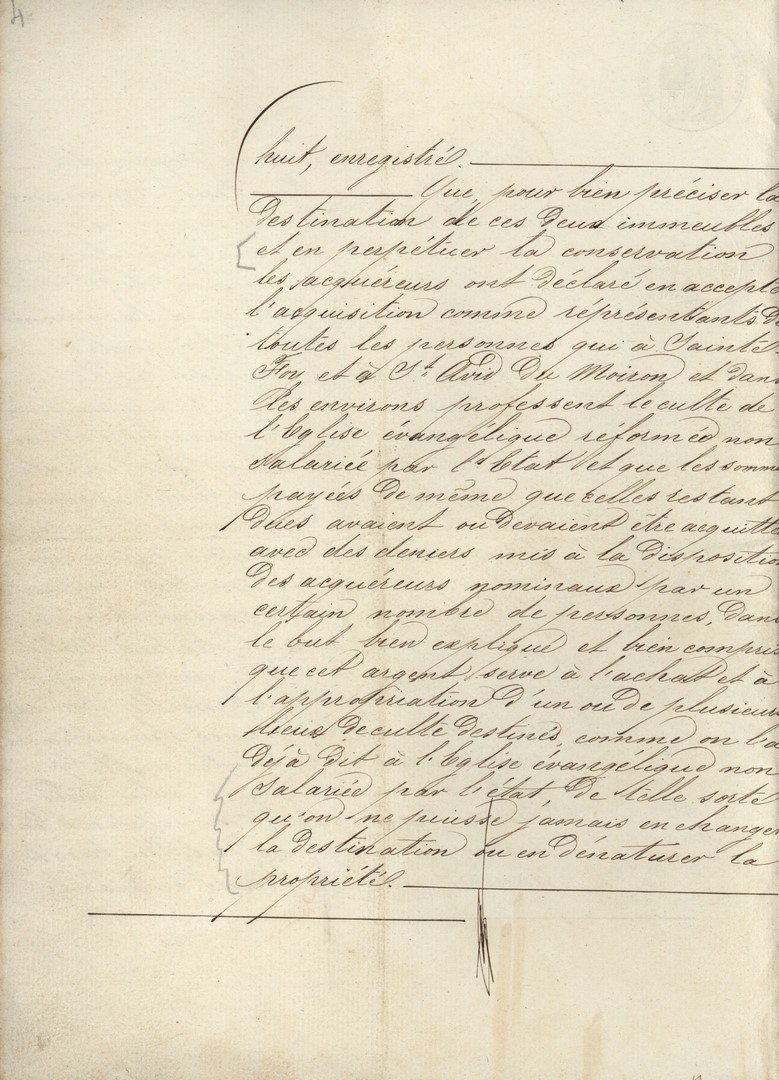 4
huit, enregistré.
Que, pour bien préciser la
destination de ces deux immeubles
et en perpétuer la conservation
les acquéreurs ont déclaré en accepte
l'acquisition comme réprésentants d
toutes les personnes qui à Sainte
Foy et à St Avid du Moiron et dans
les environs professent le culte de
l'Eglise évangélique réformée non
salariée par l'Etat et que les somme
payées de même que celles restant
dues avaient ou devaient être acquitté
avec des deniers mis à la dispositio
des acquéreurs nominaux par un
certain nombre de personnes, dans
le but bien expliqué et bien compris
que cet argent serve à l'achat et à
l'appropriation d'un ou de plusieurs
lieux de culte destinés, comme on l'a
déjà dit à l'Eglise évangélique non
salariée par l'état, de telle sorte
qu'on ne puisse jamais en changer
la destination ou en dénaturer la
propriété.